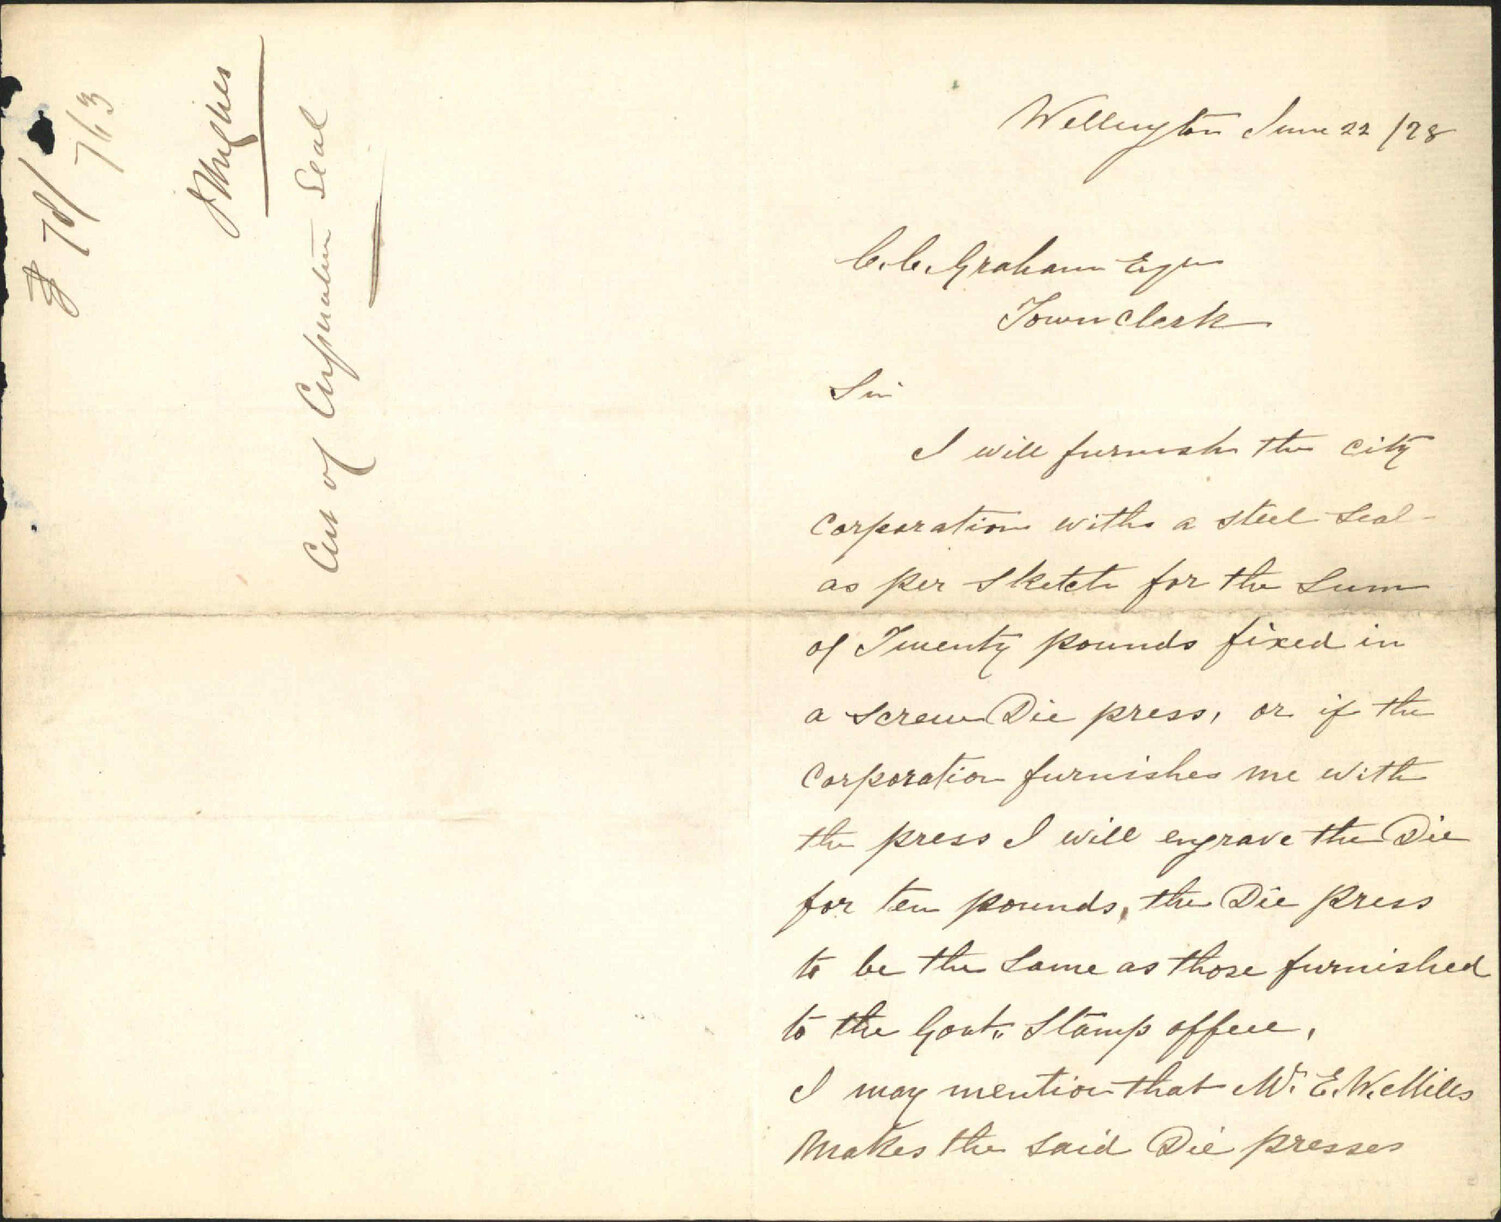 78/
713
Hughes
Cut of Corporation Seal
Wellington June 22 /78
C. C. Graham Esqr
Town Clerk
Sir
I will furnish the City
Corporation with a steel Seal
as per Sketch for the Sum
of Twenty pounds fixed in
a Screw Die press, or if the
Corporation furnishes me with
the press I will engrave the Die
for ten pounds, the Die press
to be the Same as those furnished
to the Govt. Stamp office,
I may mention that Mr. E. W. Mills
Makes the Said Die presses